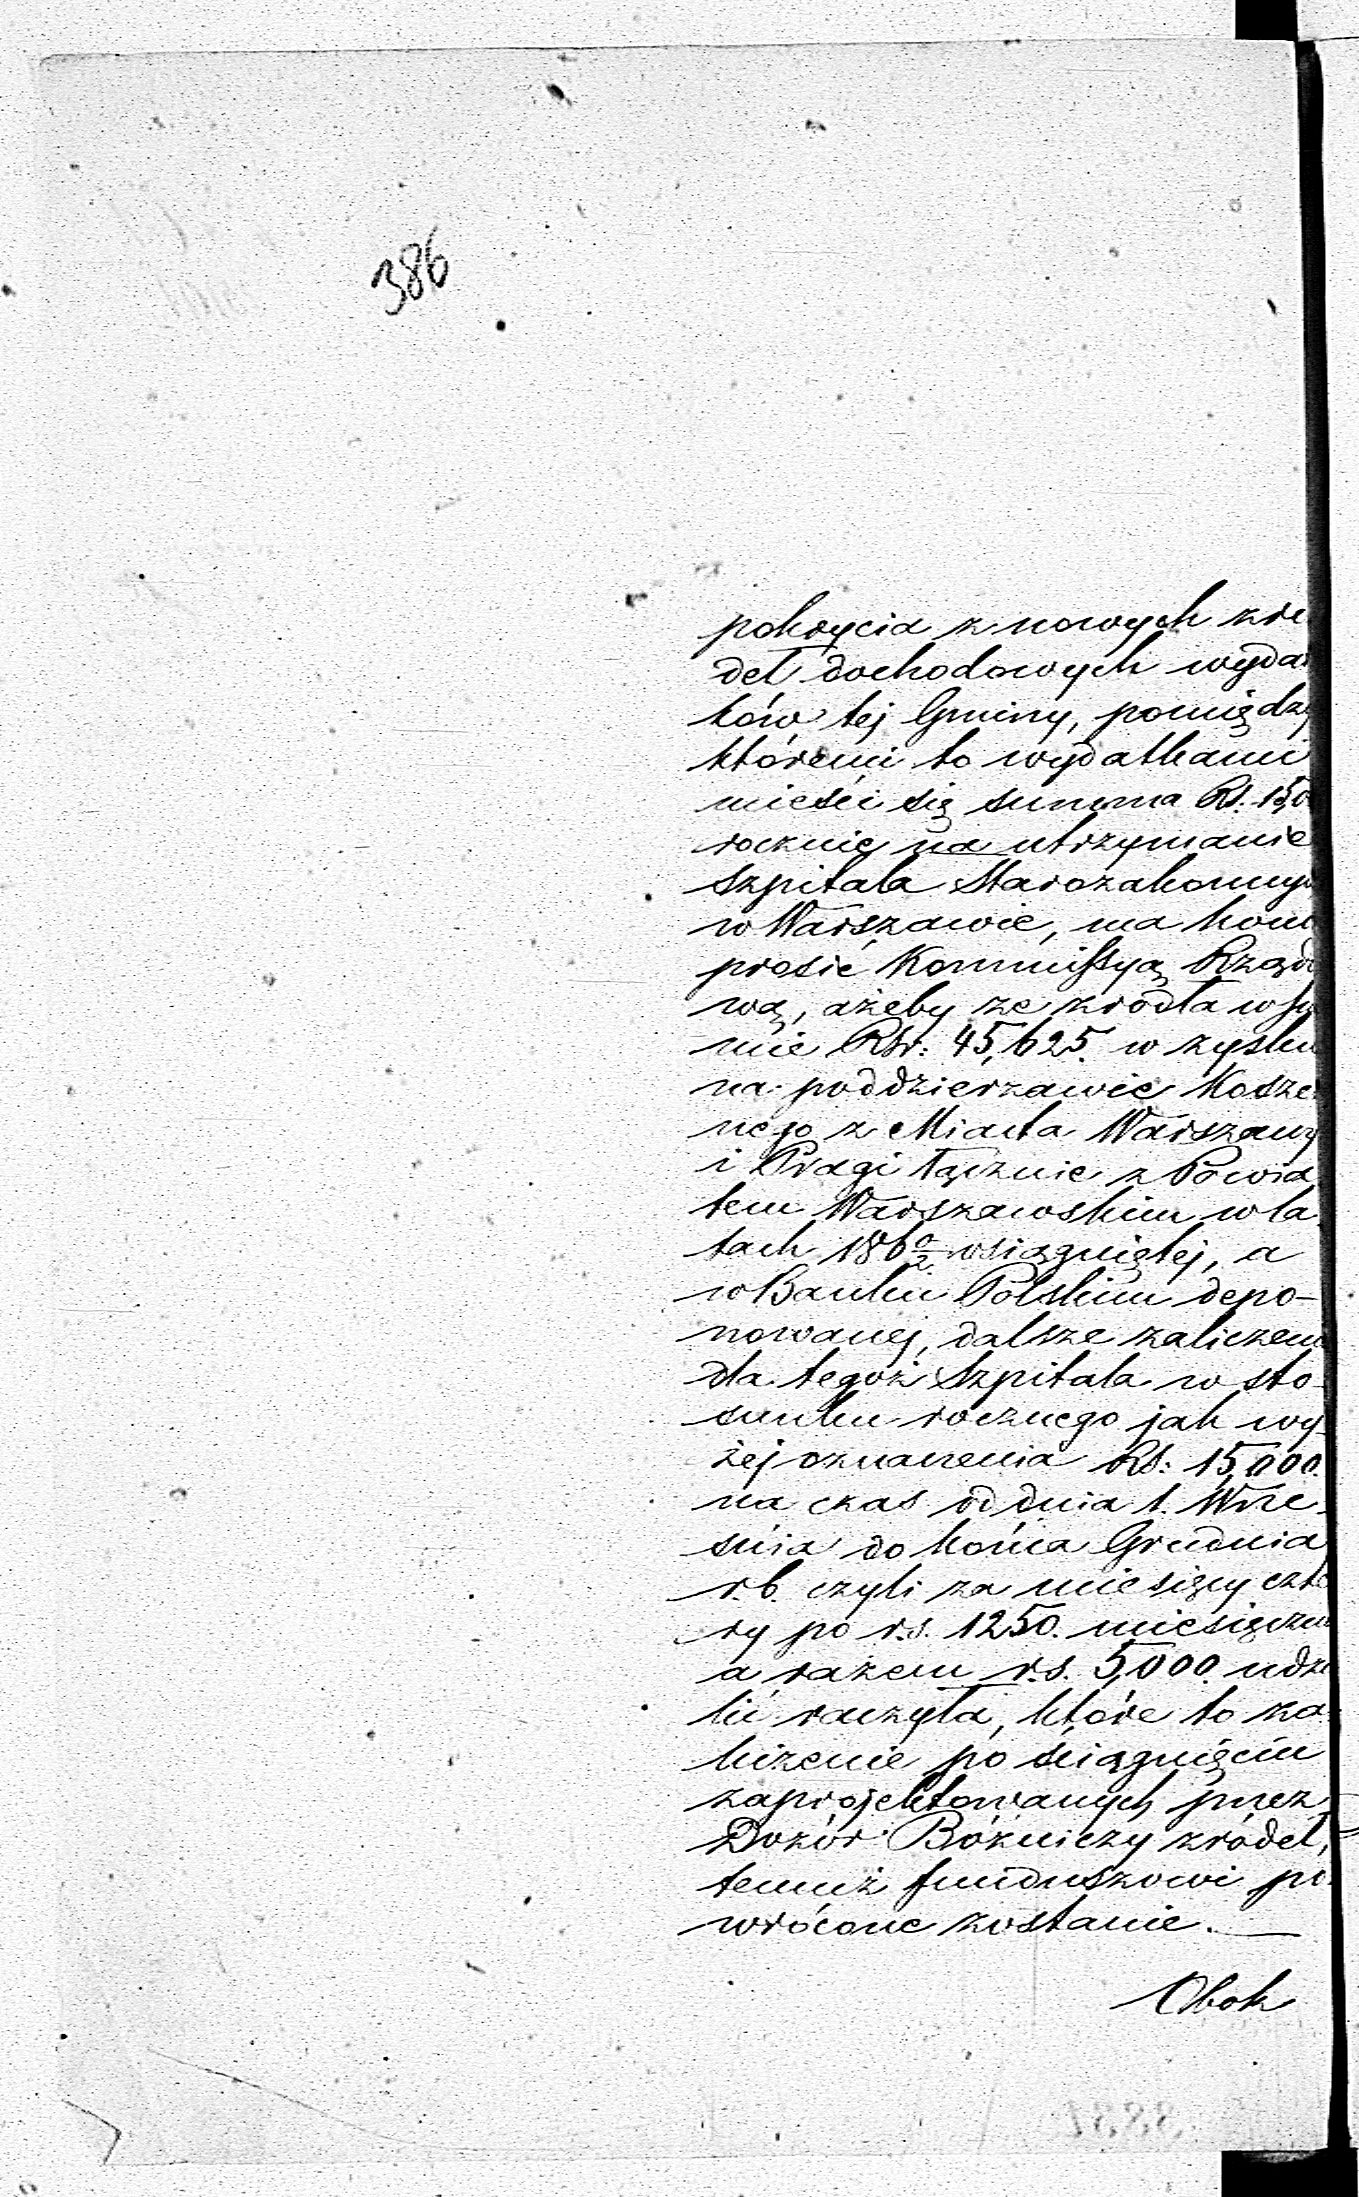 386
pokrycia z nowych źró
deł dochodowych wydat
ków tej Gminy, pomiędzy
któremi to wydatkami
mieści się summa Rs. 15,0
rocznie na utrzymanie
Szpitala Starozakonnych
w Warszawie, ma hono
prosić Kommissyą Rządo
wą, ażeby ze źródła w su
mie Rsr: 45,625. w zysku
na poddzierżawie Kosze
nego z Miasta Warszawy
i Pragi łącznie z Powia
tem Warszawskim w la
tach 186 0/2 osiągniętej, a
w Banku Polskim depo-
nowanej, dalsze zaliczenie
dla tegoż Szpitala w sto-
sunku rocznego jak wy-
żej oznaczenia Rs: 15,000.
na czas od dnia 1. Wrze-
śnia do końca Grudnia
r.b. czyli za miesięcy czte
ry po r.s. 1250. miesięcznie
a razem r.s. 5,000. udzie
lić raczyła, które to za-
liczenie po ściągnięciu
zaprojektowanych przez
Dozór Bóżniczy źródeł,
temuż funduszowi po-
wrócone zostanie.
Obok